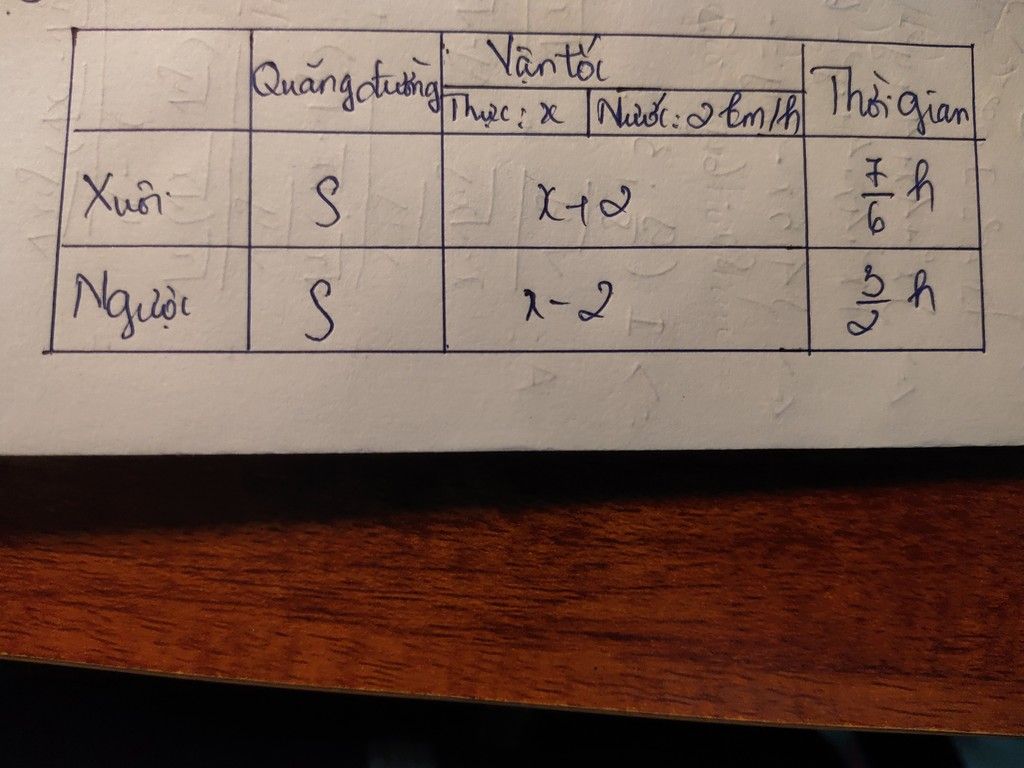 Quãng đường Vận tốc Thời gian
Thực: x Nước: 2 km/h
Xuôi S x+2 7/6 h
Ngược S x-2 3/2 h